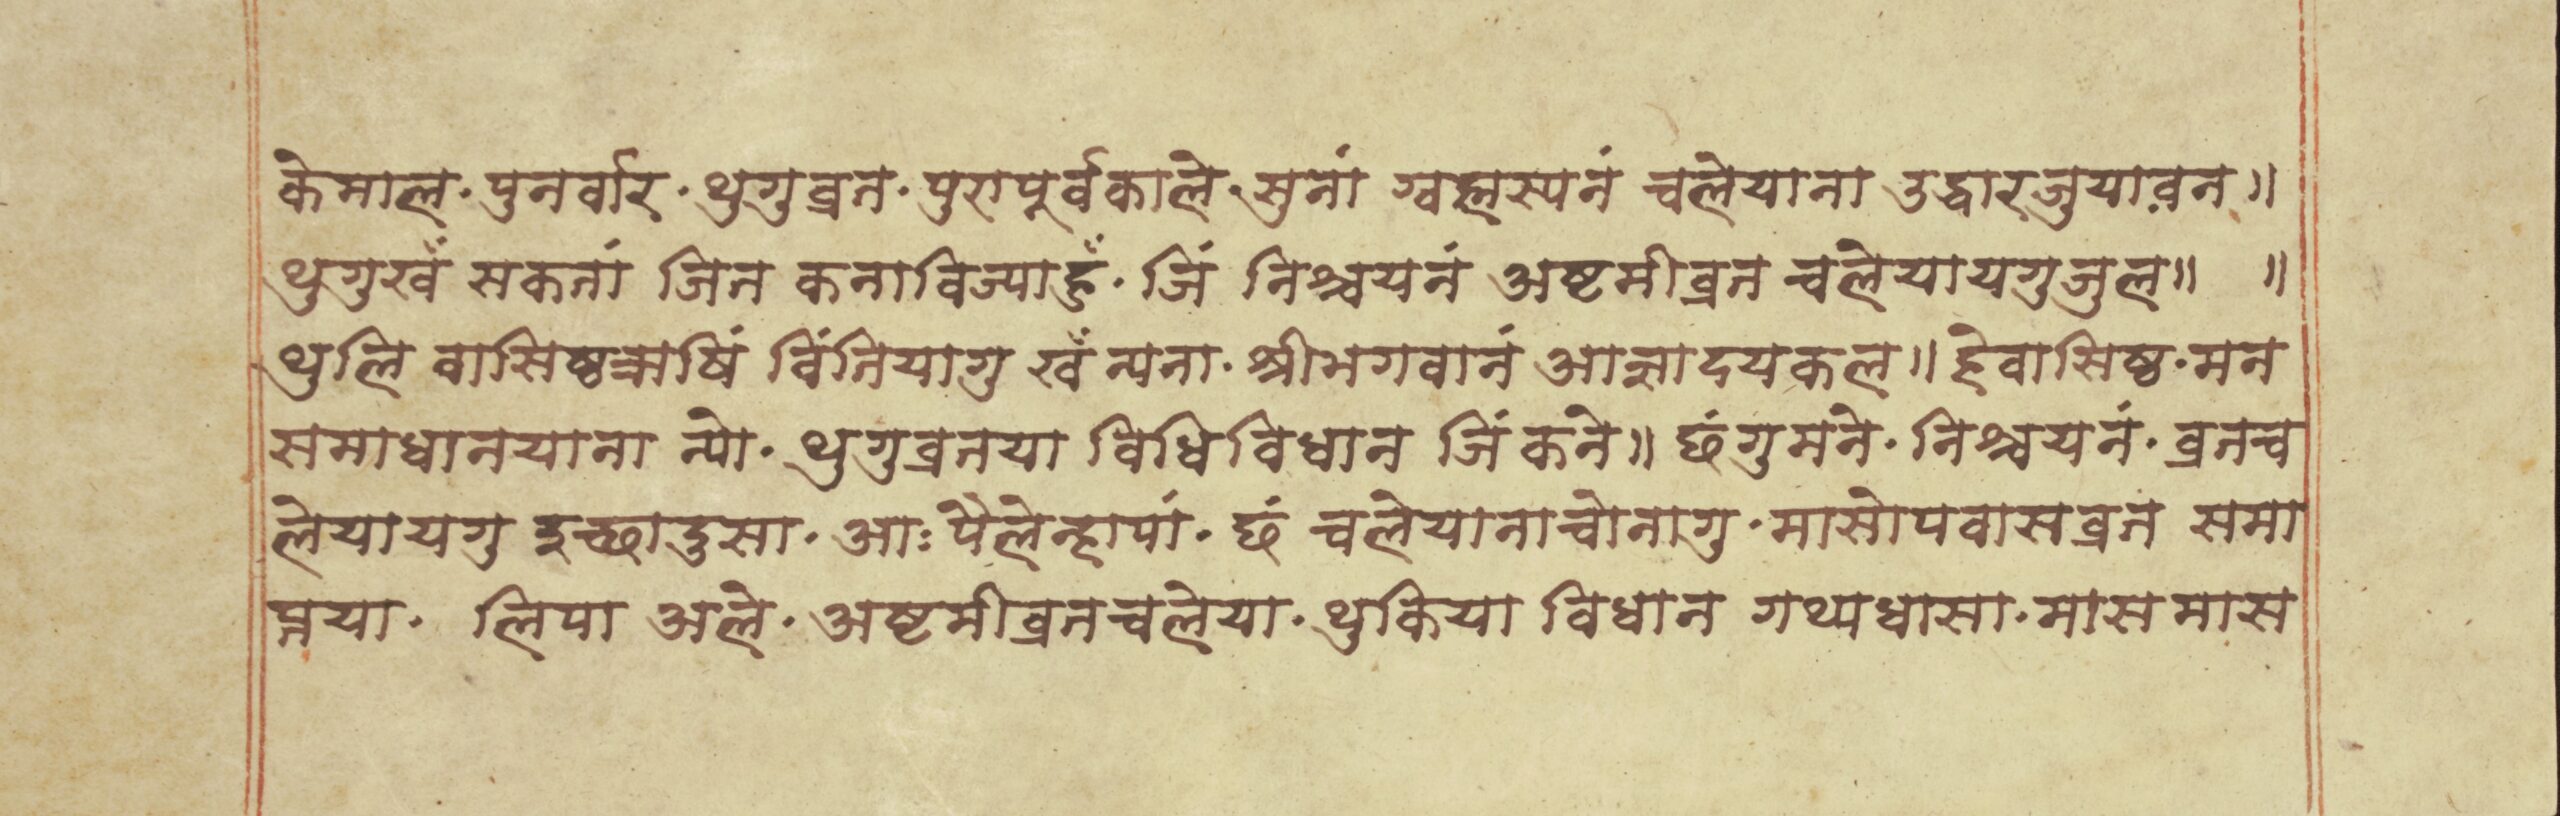 केमाल· पुनर्वार· थुगुव्रत· पुरापूर्वकाले· सुनां ग्वह्मस्यनं चलेयाना उद्धारजुयावन॥
थुगुखँ सकतां जित कनाविज्याहुँ· जिं निश्चयनं अष्टमीव्रत चलेयायगुजुल॥ ॥
थुलि वासिष्ठऋषिं विंतियागु खँ न्यना· श्रीभगवानं आज्ञादयकल॥ हेवासिष्ठ· मन
समाधानयाना न्यो· थुगुव्रतया विधिविधान जिं कने॥ छंगुमने· निश्चयनं· व्रतच
लेयायगु इच्छादुसा· आः पैलेन्हापां· छं चलेयानाचोनागु· मासोपवासव्रत समा
प्तया· लिपा अले· अष्टमीव्रतचलेया· थुकिया विधान गथ्यधासा· मास मास